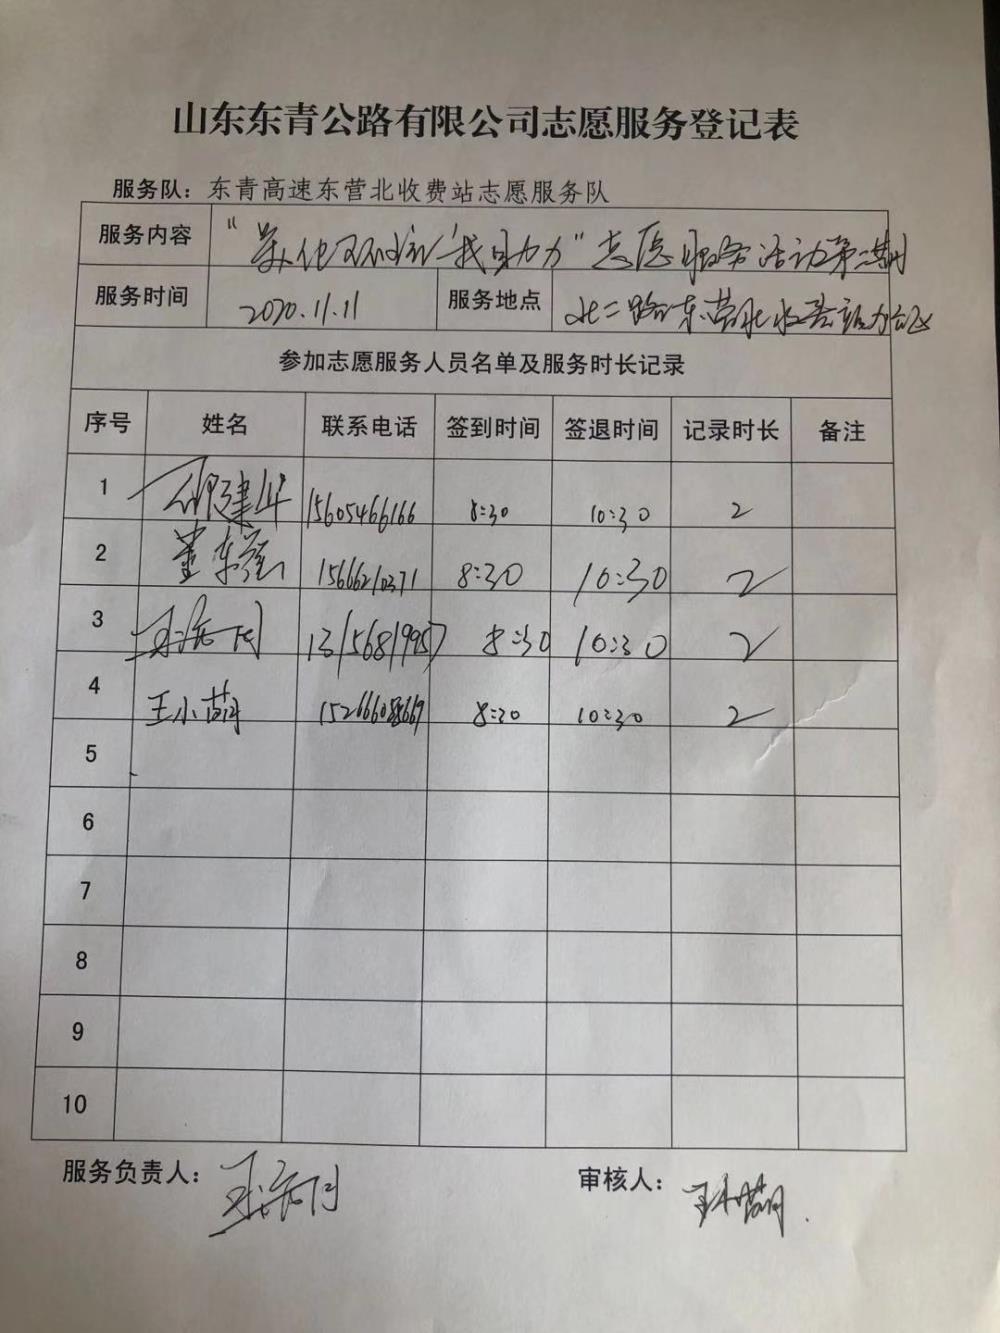 山东东青公路有限公司志愿服务登记表
服务队：东青高速东营北收费站志愿服务队
服务内容 志愿服务活动第二期
服务时间 2020.11.11 服务地点 北二路东营北收费站
参加志愿服务人员名单及服务时长记录
序号 姓名 联系电话 签到时间 签退时间 记录时长 备注
1 建华 15605466166 8:30 10:30 2
2 董东 15666210371 8:30 10:30 2
3 13156819957 8:30 10:30 2
4 王小萌 8:30 10:30 2
5
6
7
8
9
10
服务负责人： 审核人：王小萌